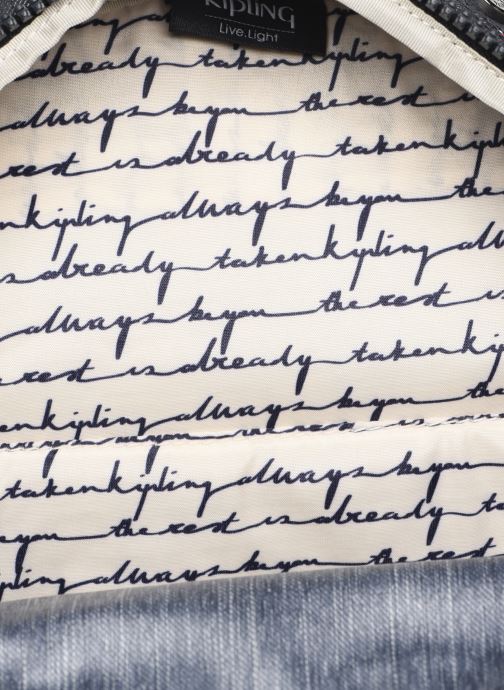 KIPLING
Live.Light
already takenkipling
always be you the rest
rest is already takenkipling
nkipling always be you the
s already takenkipling alw
always be you the rest is
rest is already takenkip
enkipling always be you the
takenkipling always be you
you the rest is already ta
pling always be you the rest